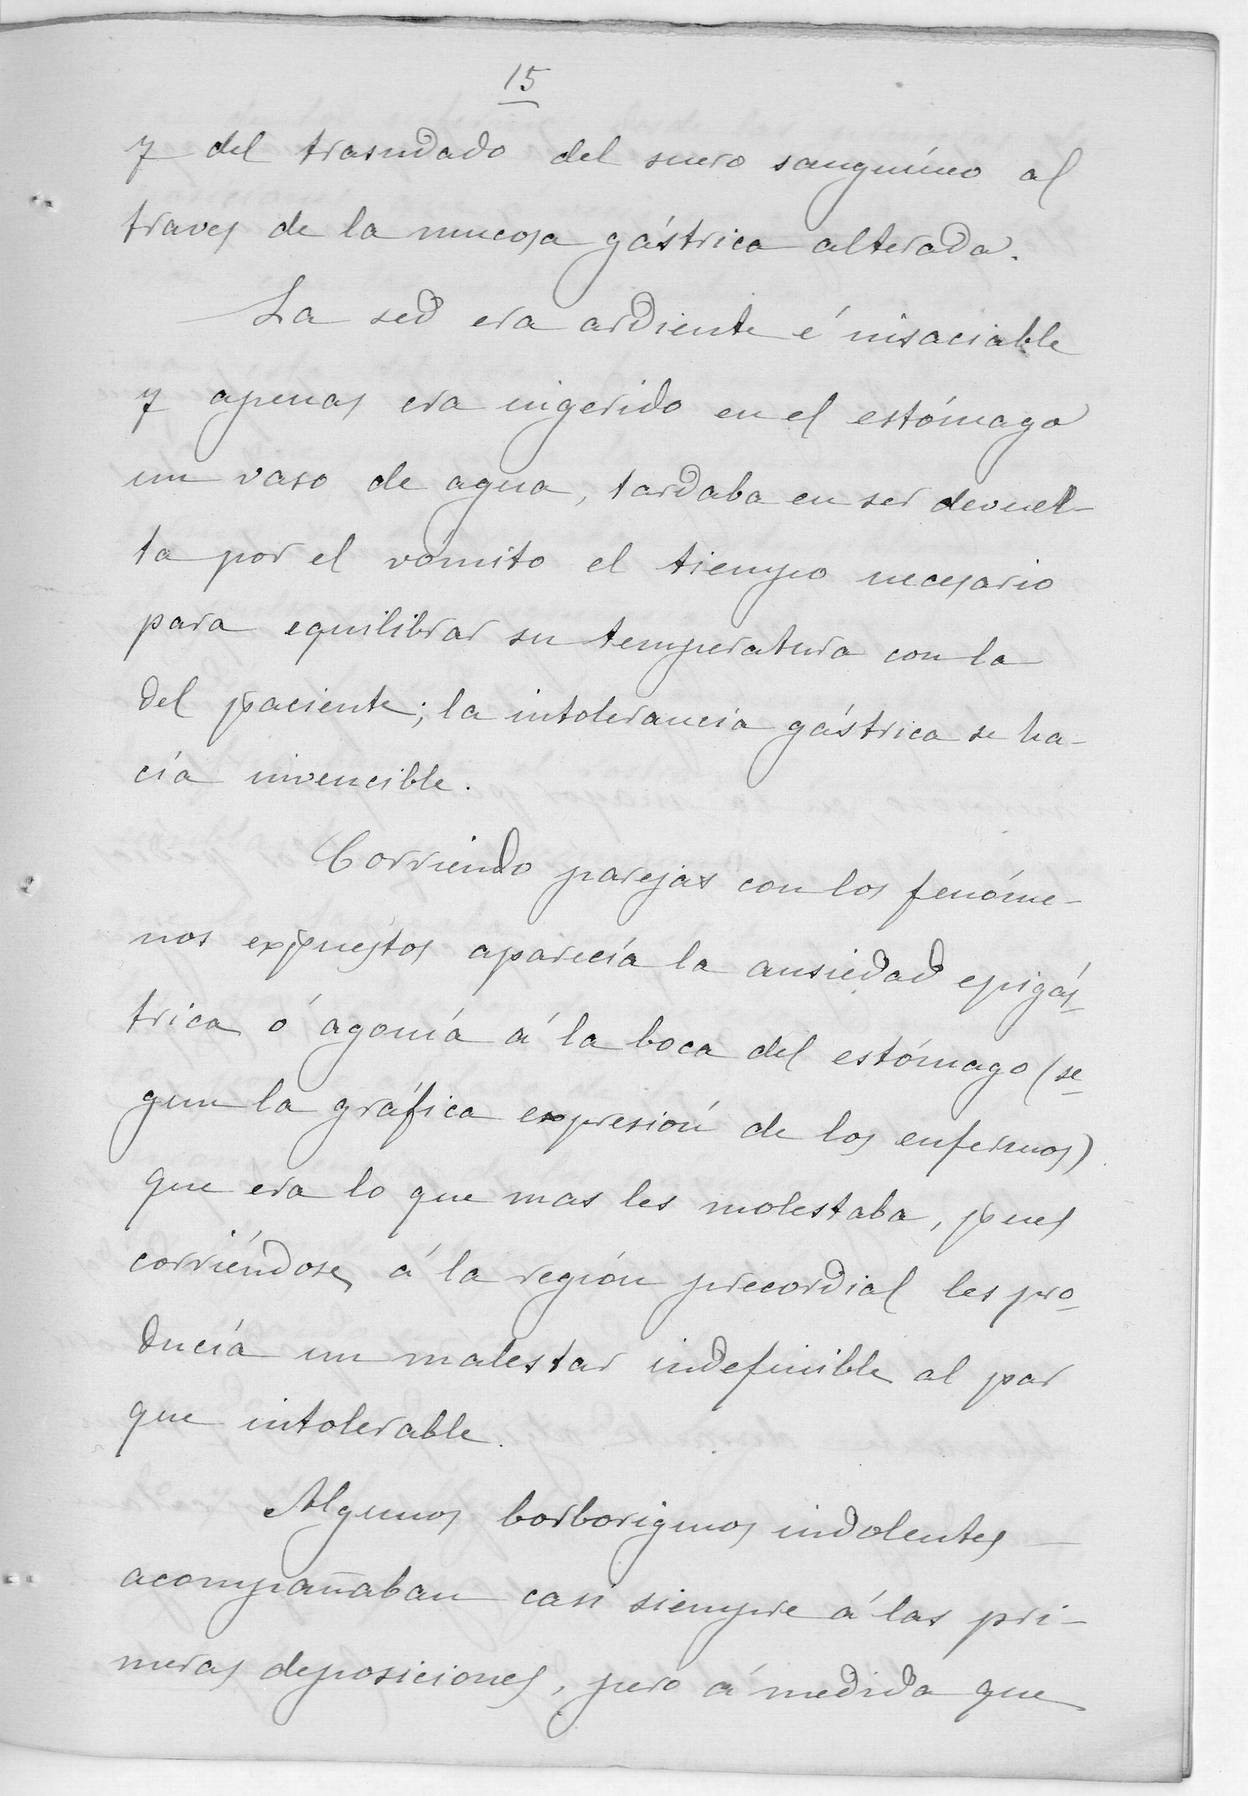 15
y del trasudado del suero sanguíneo al
traves de la mucosa gástrica alterada.
La sed era ardiente é insaciable
y apenas era ingerido en el estómago
un vaso de agua, tardaba en ser devuel-
ta por el vómito el tiempo necesario
para equilibrar su temperatura con la
del paciente; la intolerancia gástrica se ha-
cía invencible.
Corriendo parejas con los fenóme-
nos expuestos aparecía la ansiedad epigás-
trica ó agonía á la boca del estómago (se-
gun la gráfica expresión de los enfermos)
que era lo que mas les molestaba, pues
corriéndose á la región precordial les pro-
ducía un malestar indefinible al par
que intolerable.
Algunos borborigmos indolentes
acompañaban casi siempre á las pri-
meras deposiciones, pero á medida que